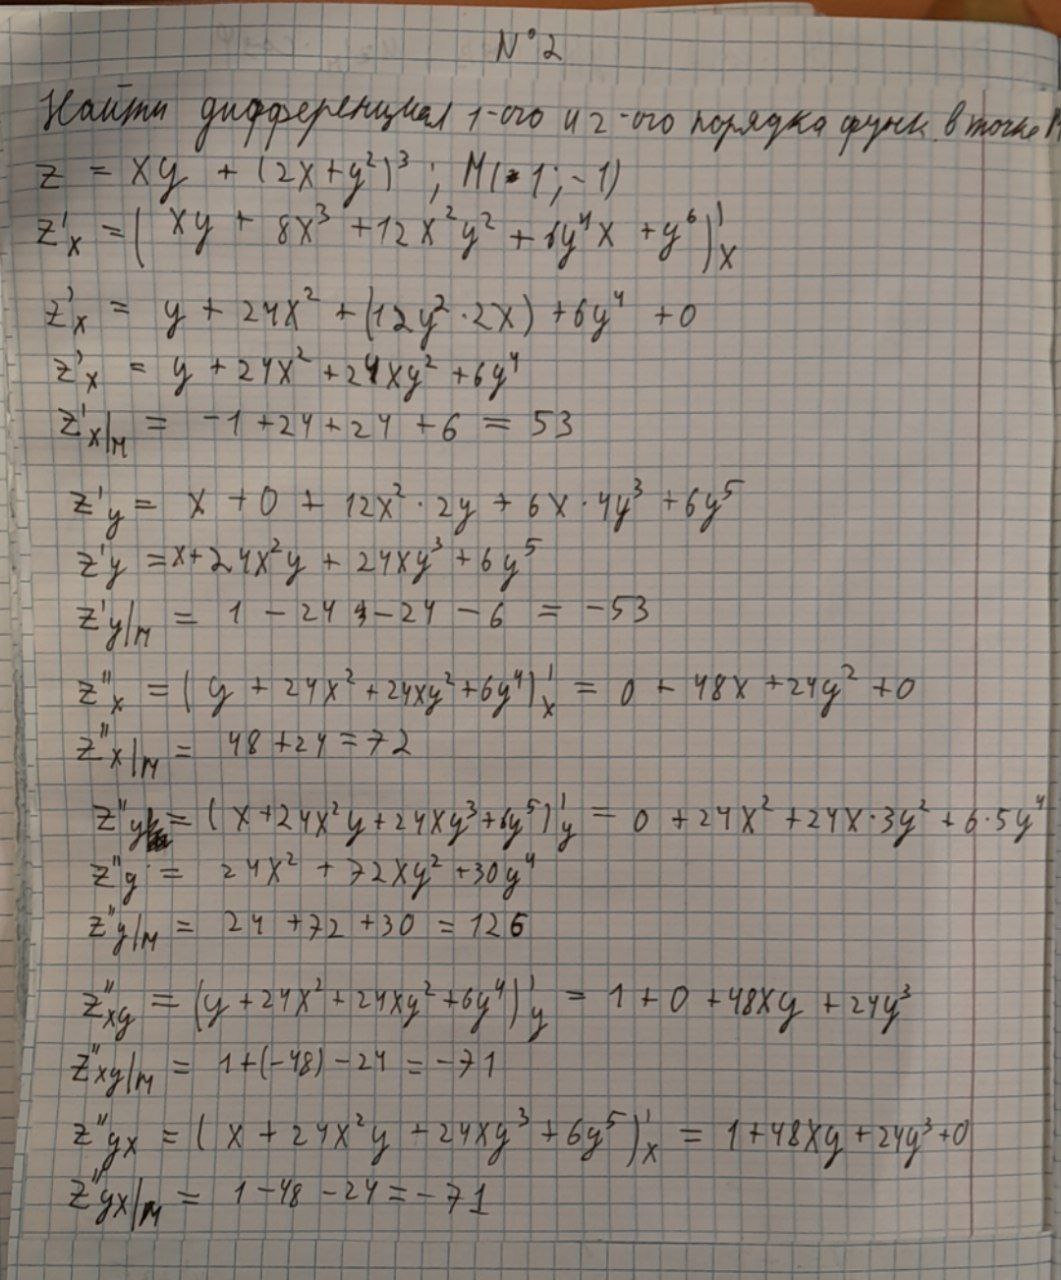 N°2
Найти дифференциал 1-ого и 2-ого порядка функ. в точке М
z = xy + (2x+y²)³ ; M(1;-1)
z'x = (xy + 8x³ + 12x²y² + 6y⁴x + y⁶)'x
z'x = y + 24x² + (12y²·2x) + 6y⁴ + 0
z'x = y + 24x² + 24xy² + 6y⁴
z'x|м = -1 + 24 + 24 + 6 = 53
z'y = x + 0 + 12x²·2y + 6x·4y³ + 6y⁵
z'y = x + 24x²y + 24xy³ + 6y⁵
z'y|м = 1 - 24 - 24 - 6 = -53
z''x = (y + 24x² + 24xy² + 6y⁴)'x = 0 + 48x + 24y² + 0
z''x|м = 48 + 24 = 72
z''y = (x + 24x²y + 24xy³ + 6y⁵)'y = 0 + 24x² + 24x·3y² + 6·5y⁴
z''y = 24x² + 72xy² + 30y⁴
z''y|м = 24 + 72 + 30 = 126
z''xy = (y + 24x² + 24xy² + 6y⁴)'y = 1 + 0 + 48xy + 24y³
z''xy|м = 1 + (-48) - 24 = -71
z''yx = (x + 24x²y + 24xy³ + 6y⁵)'x = 1 + 48xy + 24y³ + 0
z''yx|м = 1 - 48 - 24 = -71